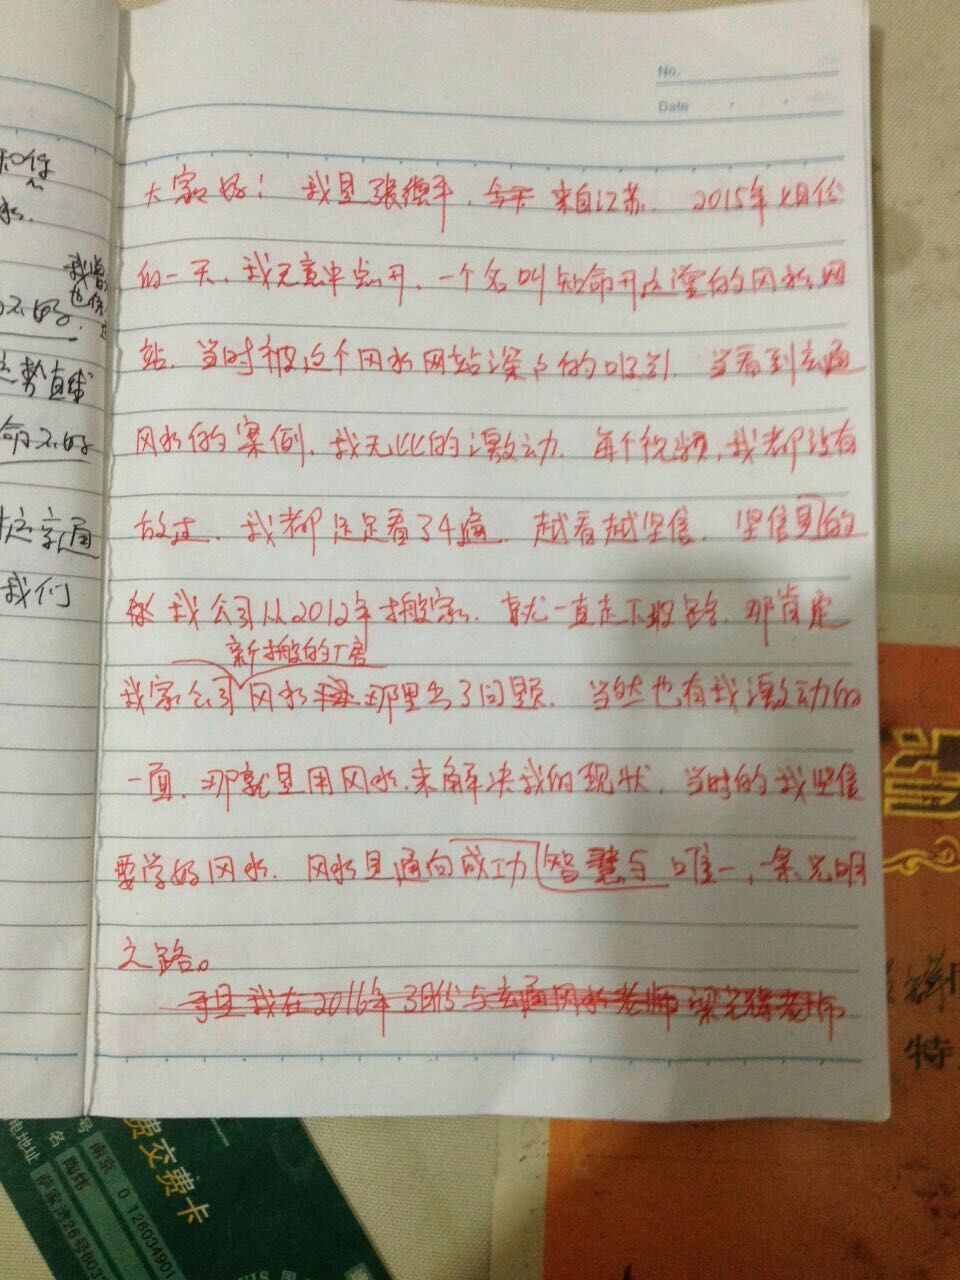 No.
Date
大家好！ 我是张继平，今天 来自江苏． 2015年七月份
的一天，我无意中点开，一个名叫知命开运堂的风水网
站．当时被这个风水网站深深的吸引．当看到玄通
风水的案例，我无比的激动．每个视频，我都没有
放过．我都足足看了4遍．越看越坚信．坚信是的
我公司从2012年搬家，就一直走下坡路．那肯定
新搬的厂房
我家公司风水那里出了问题．当然也有我激动的
一面．那就是用风水来解决我的现状，当时的我坚信
要学好风水．风水是通向成功智慧与唯一，一条光明
之路。
于是我在2016年3月份与玄通风水老师梁光辉老师
我们
命不好
费交费卡
南京 0 126034901
陶炜
特